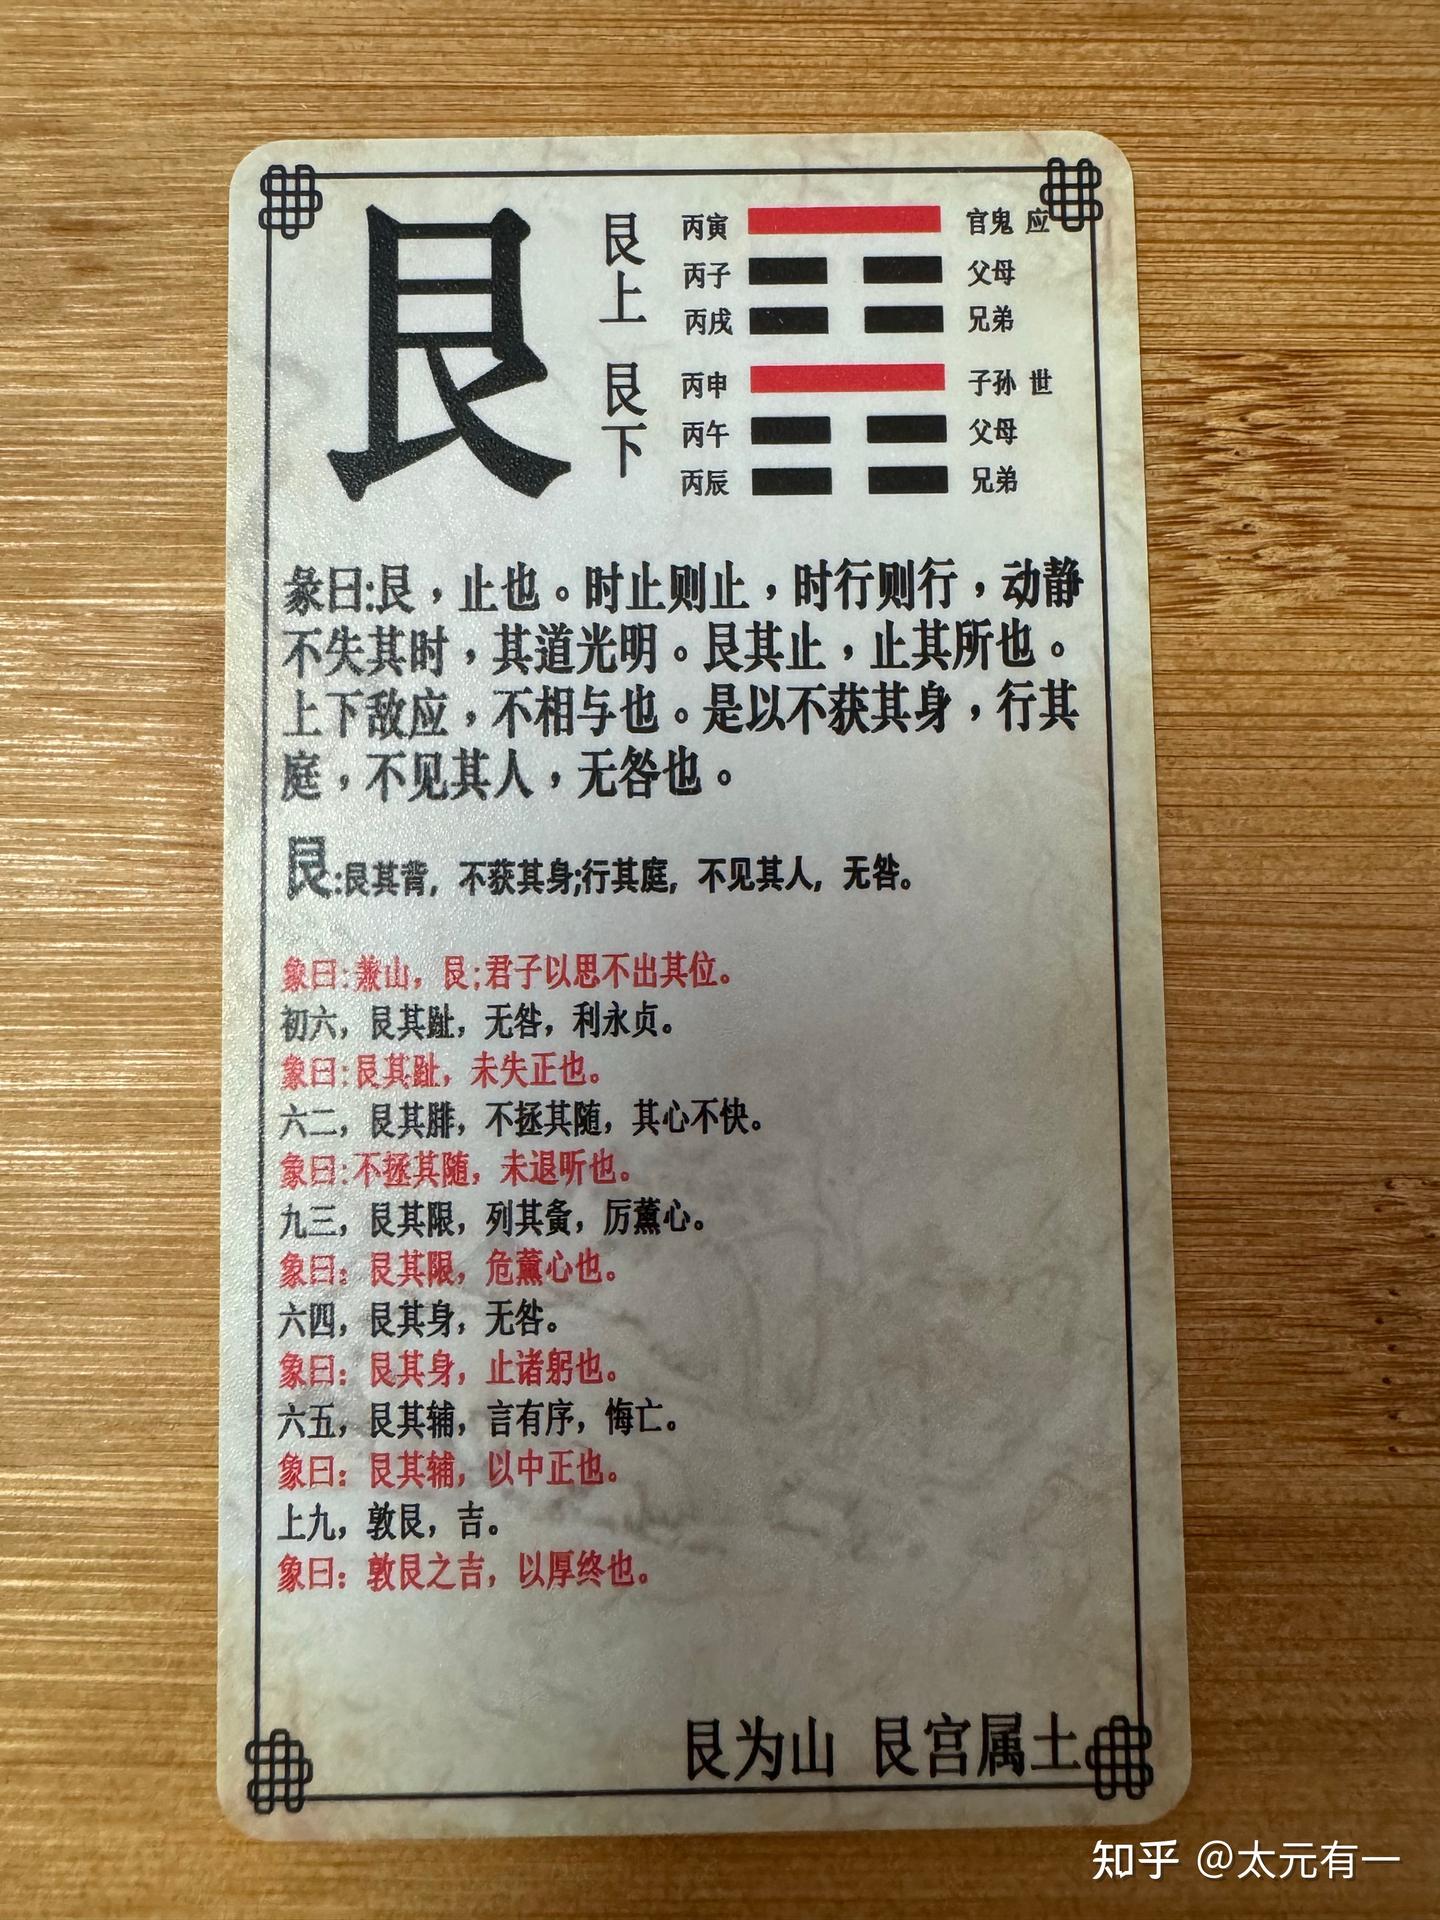 艮
艮上
艮下
丙寅 官鬼 应
丙子 父母
丙戌 兄弟
丙申 子孙 世
丙午 父母
丙辰 兄弟
彖曰:艮，止也。时止则止，时行则行，动静
不失其时，其道光明。艮其止，止其所也。
上下敌应，不相与也。是以不获其身，行其
庭，不见其人，无咎也。
艮:艮其背，不获其身;行其庭，不见其人，无咎。
象曰:兼山，艮;君子以思不出其位。
初六，艮其趾，无咎，利永贞。
象曰:艮其趾，未失正也。
六二，艮其腓，不拯其随，其心不快。
象曰:不拯其随，未退听也。
九三，艮其限，列其夤，厉薰心。
象曰：艮其限，危薰心也。
六四，艮其身，无咎。
象曰：艮其身，止诸躬也。
六五，艮其辅，言有序，悔亡。
象曰：艮其辅，以中正也。
上九，敦艮，吉。
象曰：敦艮之吉，以厚终也。
艮为山 艮宫属土
知乎 @太元有一